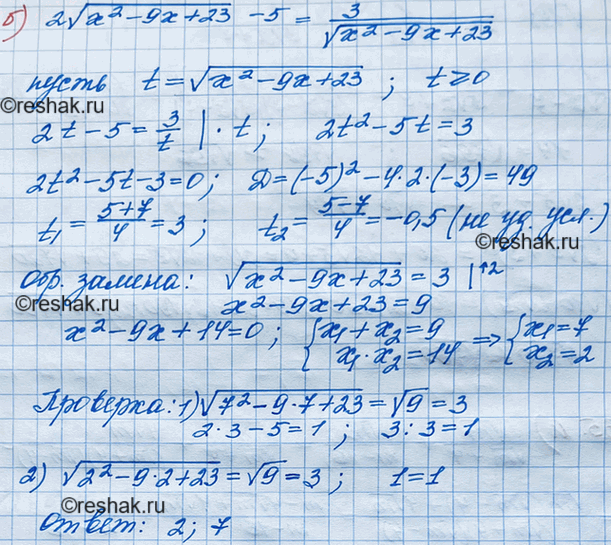 б) 2√(x²-9x+23) -5 = 3/√(x²-9x+23)
пусть t=√(x²-9x+23) ; t≥0
©reshak.ru ©reshak.ru
2t-5=3/t |·t; 2t²-5t=3
2t²-5t-3=0; D=(-5)²-4·2·(-3)=49
t₁=(5+7)/4=3; t₂=(5-7)/4=-0,5 (не уд. усл.)
©reshak.ru
Обр. замена: √(x²-9x+23)=3 |↑2
x²-9x+23=9
x²-9x+14=0; {x₁+x₂=9 x₁·x₂=14 => {x₁=7 x₂=2
Проверка: 1)√(7²-9·7+23)=√9=3
2·3-5=1; 3:3=1
©reshak.ru
2) √(2²-9·2+23)=√9=3; 1=1
©reshak.ru
Ответ: 2; 7